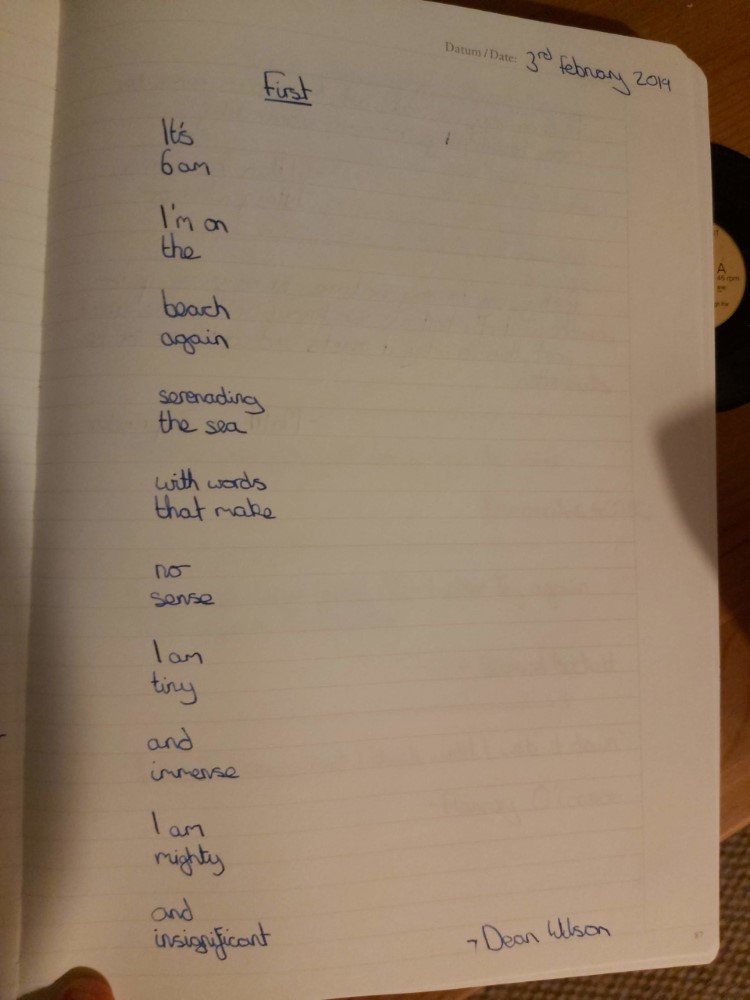 Datum / Date: 3rd February 2019
First
It's
6am
I'm on
the
beach
again
serenading
the sea
with words
that make
no
sense
I am
tiny
and
immense
I am
mighty
and
insignificant
- Dean Wilson
A
45 rpm
87